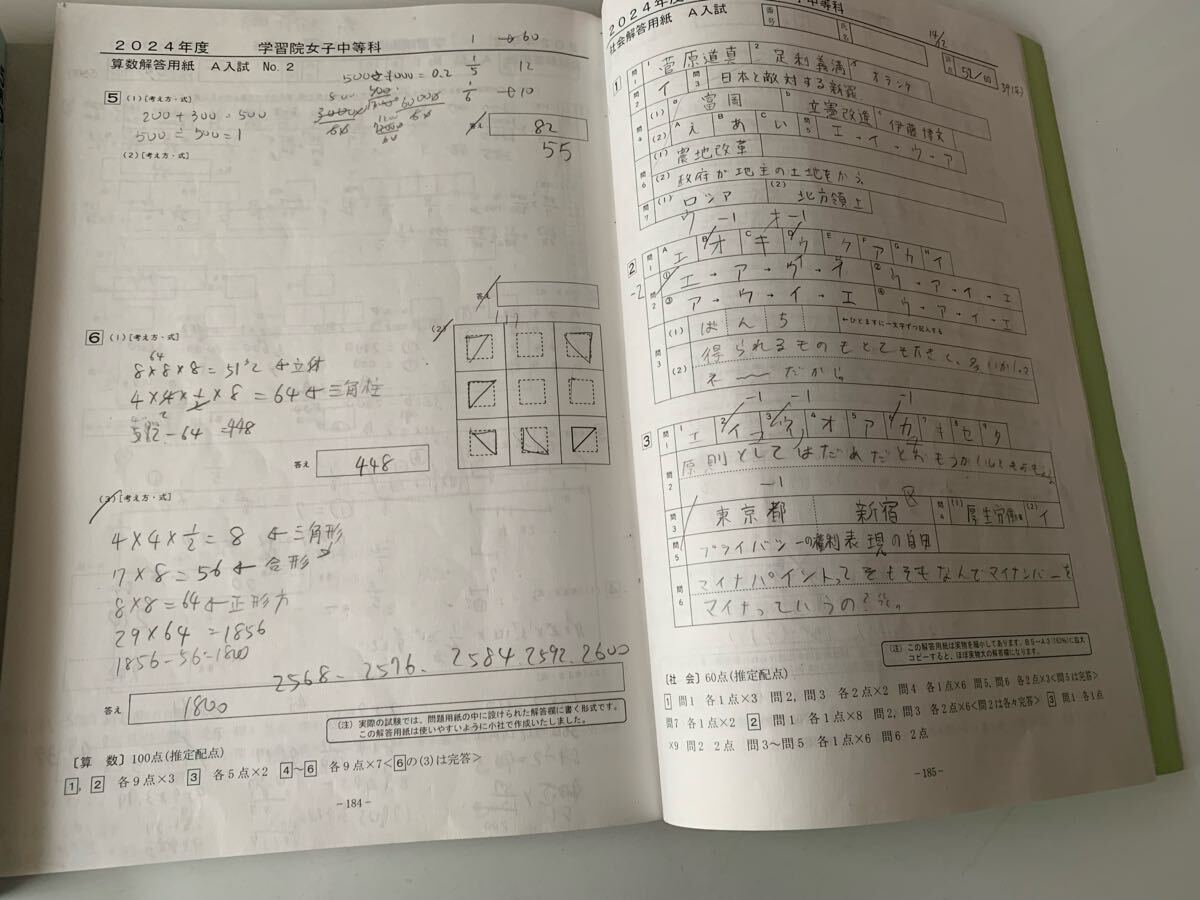 2024年度 学習院女子中等科
算数解答用紙 A入試 No.2
1 → 60
500÷1000=0.2
1/5 12
1/6 → 10
5 (1)[考え方・式]
200+300=500
500÷500=1
答え 82
55
(2)[考え方・式]
答え
6 (1)[考え方・式]
64
8×8×8=512 ←立体
4×4×1/2×8=64←三角柱
512-64=448
答え 448
(2)
(3)[考え方・式]
4×4×1/2=8 ←三角形
7×8=56←台形
8×8=64←正方形
29×64=1856
1856-56=1800
2568.2576.2584.2592.2600
答え 1800
(注) 実際の試験では、問題用紙の中に設けられた解答欄に書く形式です。
この解答用紙は使いやすいように小社で作成いたしました。
[算 数]100点(推定配点)
1, 2 各9点×3 3 各5点×2 4~6 各9点×7<6の(3)は完答>
-184-
2024年度 学習院女子中等科
社会解答用紙 A入試
番号 氏名
評点 52/60
1 問1 1 菅原道真 2 足利義満 3 オランダ
問2 イ 問3 日本と敵対する新羅
問4 (1) a 富岡 b 立憲改進 c 伊藤博文
(2) A え B あ C い 問5 エ-イ-ウ-ア
問6 (1) 農地改革
(2) 政府が地主の土地をかう。
問7 (1) ロシア (2) 北方領土
ウ -1 オ -1
2 問1 A エ B オ C キ D ウ E ク F ア G カ H イ
-2 問2 ① エ→ア→ウ→イ ② ウ→ア→イ→エ
③ ア→ウ→イ→エ ④ ウ→ア→イ→エ
問3 (1) はんち ←ひとますに一文字ずつ記入する
(2) 得られるものもとても大きく、
だから
-1 -1 -1
3 問1 1 エ 2 イ 3 ウ 4 オ 5 ア 6 カ 7 キ 8 セ 9 ク
問2 原則としてはだめだと
-1
問3 東京都 新宿区 問4 (1) 厚生労働省 (2) イ
問5 プライバシーの権利 表現の自由
問6 マイナポイントってそもそもなんでマイナンバーを
マイナっていうの?
(注) この解答用紙は実物を縮小してあります。B5→A3(163%)に拡大
コピーすると、ほぼ実物大の解答欄になります。
[社 会]60点(推定配点)
1 問1 各1点×3 問2, 問3 各2点×2 問4 各1点×6 問5, 問6 各2点×3<問5は完答>
問7 各1点×2 2 問1 各1点×8 問2, 問3 各2点×6<問2は各々完答> 3 問1 各1点
×9 問2 2点 問3~問5 各1点×6 問6 2点
-185-